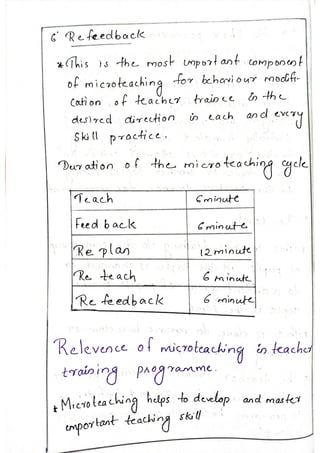 6· Refeedback
* This is the most important component
of microteaching for behaviour modifi-
cation of teacher trainee in the
desired direction in each and every
skill practice.
Duration of the microteaching cycle
Teach 6minute
Feed back 6minute
Re plan 12 minute
Re teach 6 minute
Re feedback 6 minute
Relevence of microteaching in teacher
training programme.
* Microteaching helps to develop and master
important teaching skill